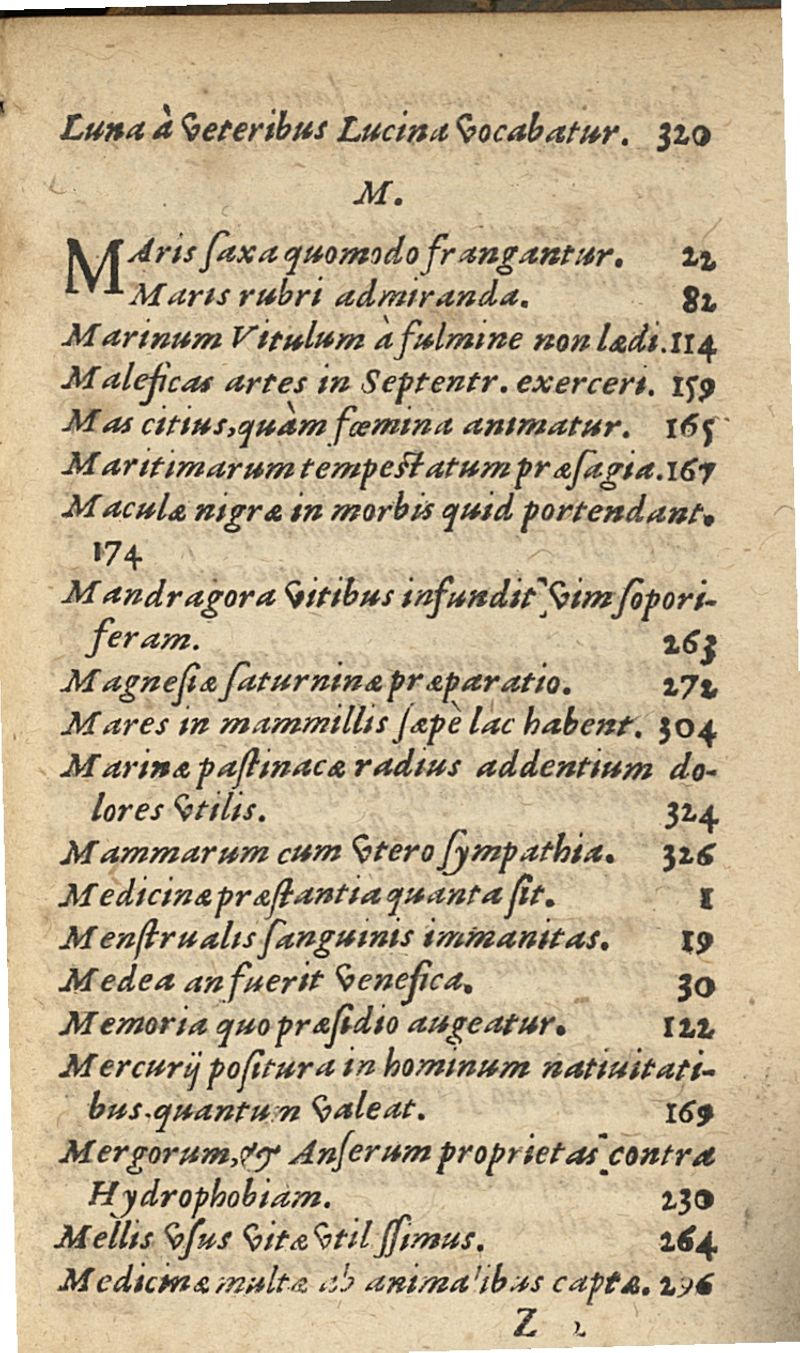 Luna à veteribus Lucina vocabatur. 320
M.
MAris ſaxa quomodo frangantur. 22
Maris rubri admiranda. 82
Marinum Vitulum à fulmine non lædi. 114
Maleficas artes in Septentr. exerceri. 159
Mas citius, quàm fœmina animatur. 165
Maritimarum tempeſtatum præſagia. 167
Maculæ nigræ in morbis quid portendant.
174
Mandragora vitibus infundit vim ſopori-
feram. 263
Magneſiæ ſaturninæ præparatio. 272
Mares in mammillis ſæpè lac habent. 304
Marinæ paſtinacæ radius ad dentium do-
lores vtilis. 324
Mammarum cum vtero ſympathia. 326
Medicinæ præſtantia quanta ſit. 1
Menſtrualis ſanguinis immanitas. 19
Medea an fuerit venefica. 30
Memoria quo præſidio augeatur. 122
Mercurij poſitura in hominum natiuitati-
bus quantum valeat. 169
Mergorum, & Anſerum proprietas contra
Hydrophobiam. 230
Mellis vſus vitæ vtil ſſimus. 264
Medicinæ multæ ab animalibus captæ. 296
Z 2